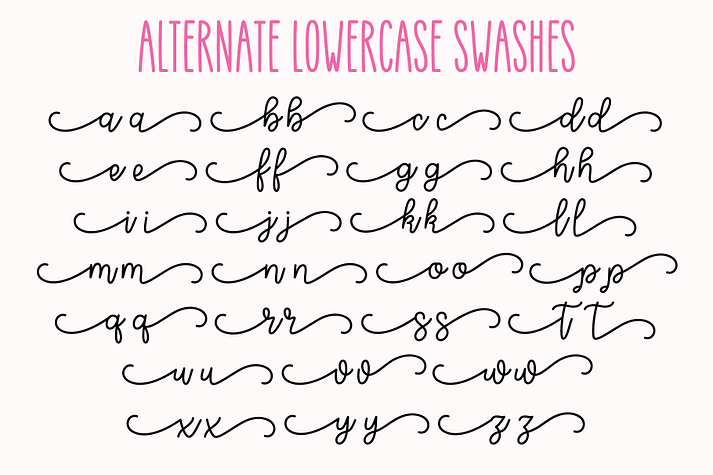 ALTERNATE LOWERCASE SWASHES
a a b b c c d d
e e f f g g h h
i i j j k k l l
m m n n o o p p
q q r r s s t t
u u v v w w
x x y y z z